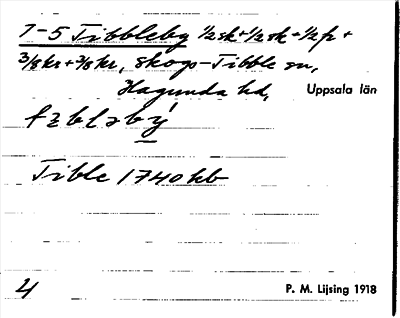 7-5 Tibbleby ½sk+½sk+½fr+
3/8kr+3/8kr, Skogs-Tibble sn,
Hagunda hd, Uppsala län
Tible 1740 kb
4 P. M. Lijsing 1918